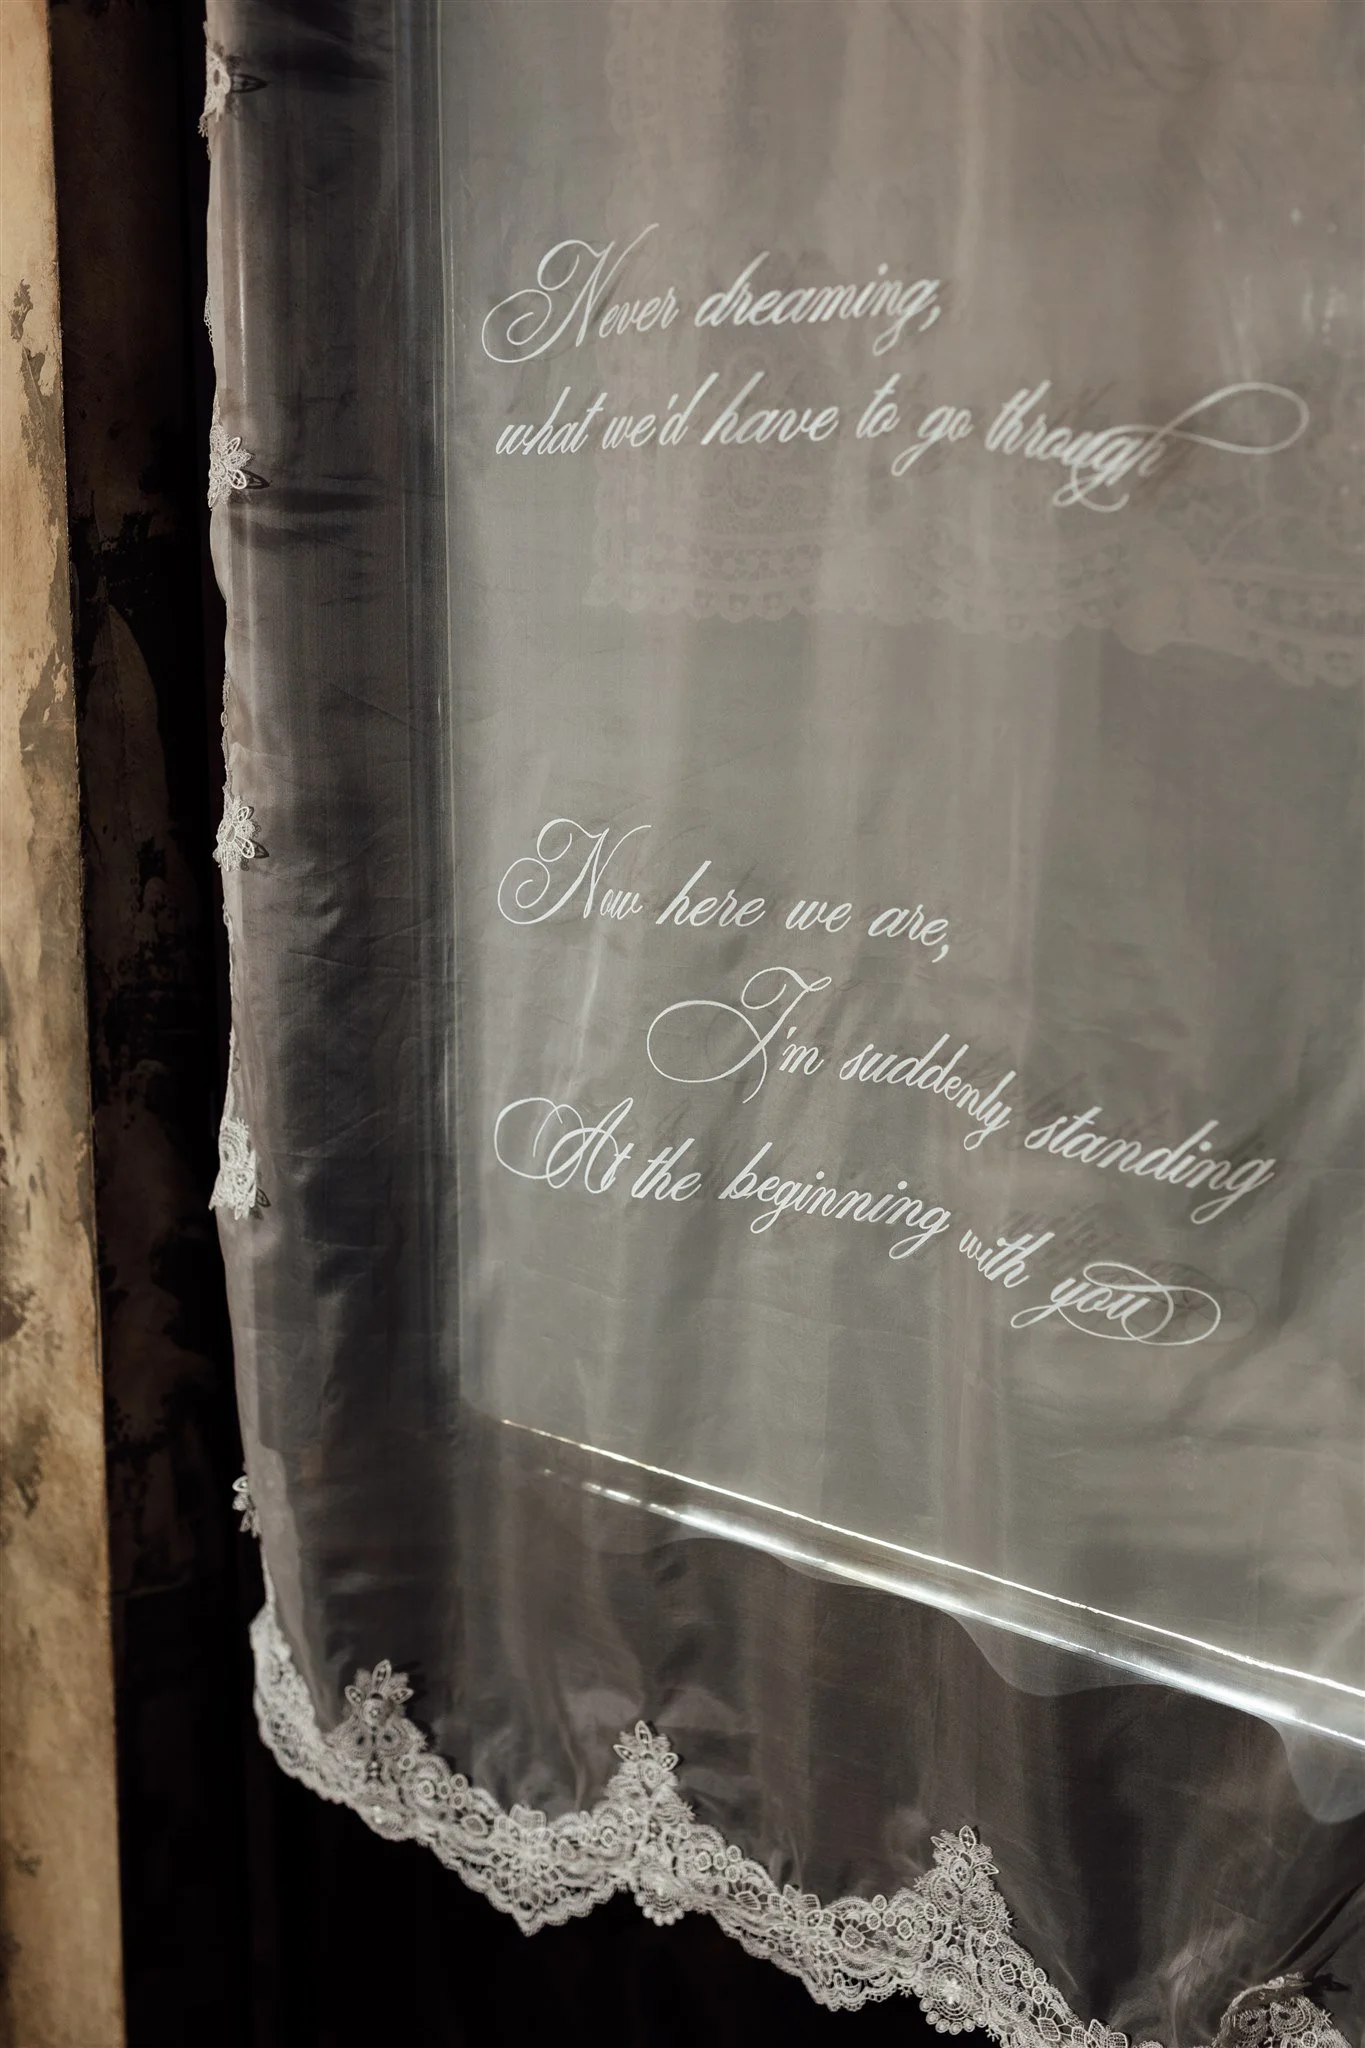 Never dreaming,
what we'd have to go through
Now here we are,
I'm suddenly standing
At the beginning with you